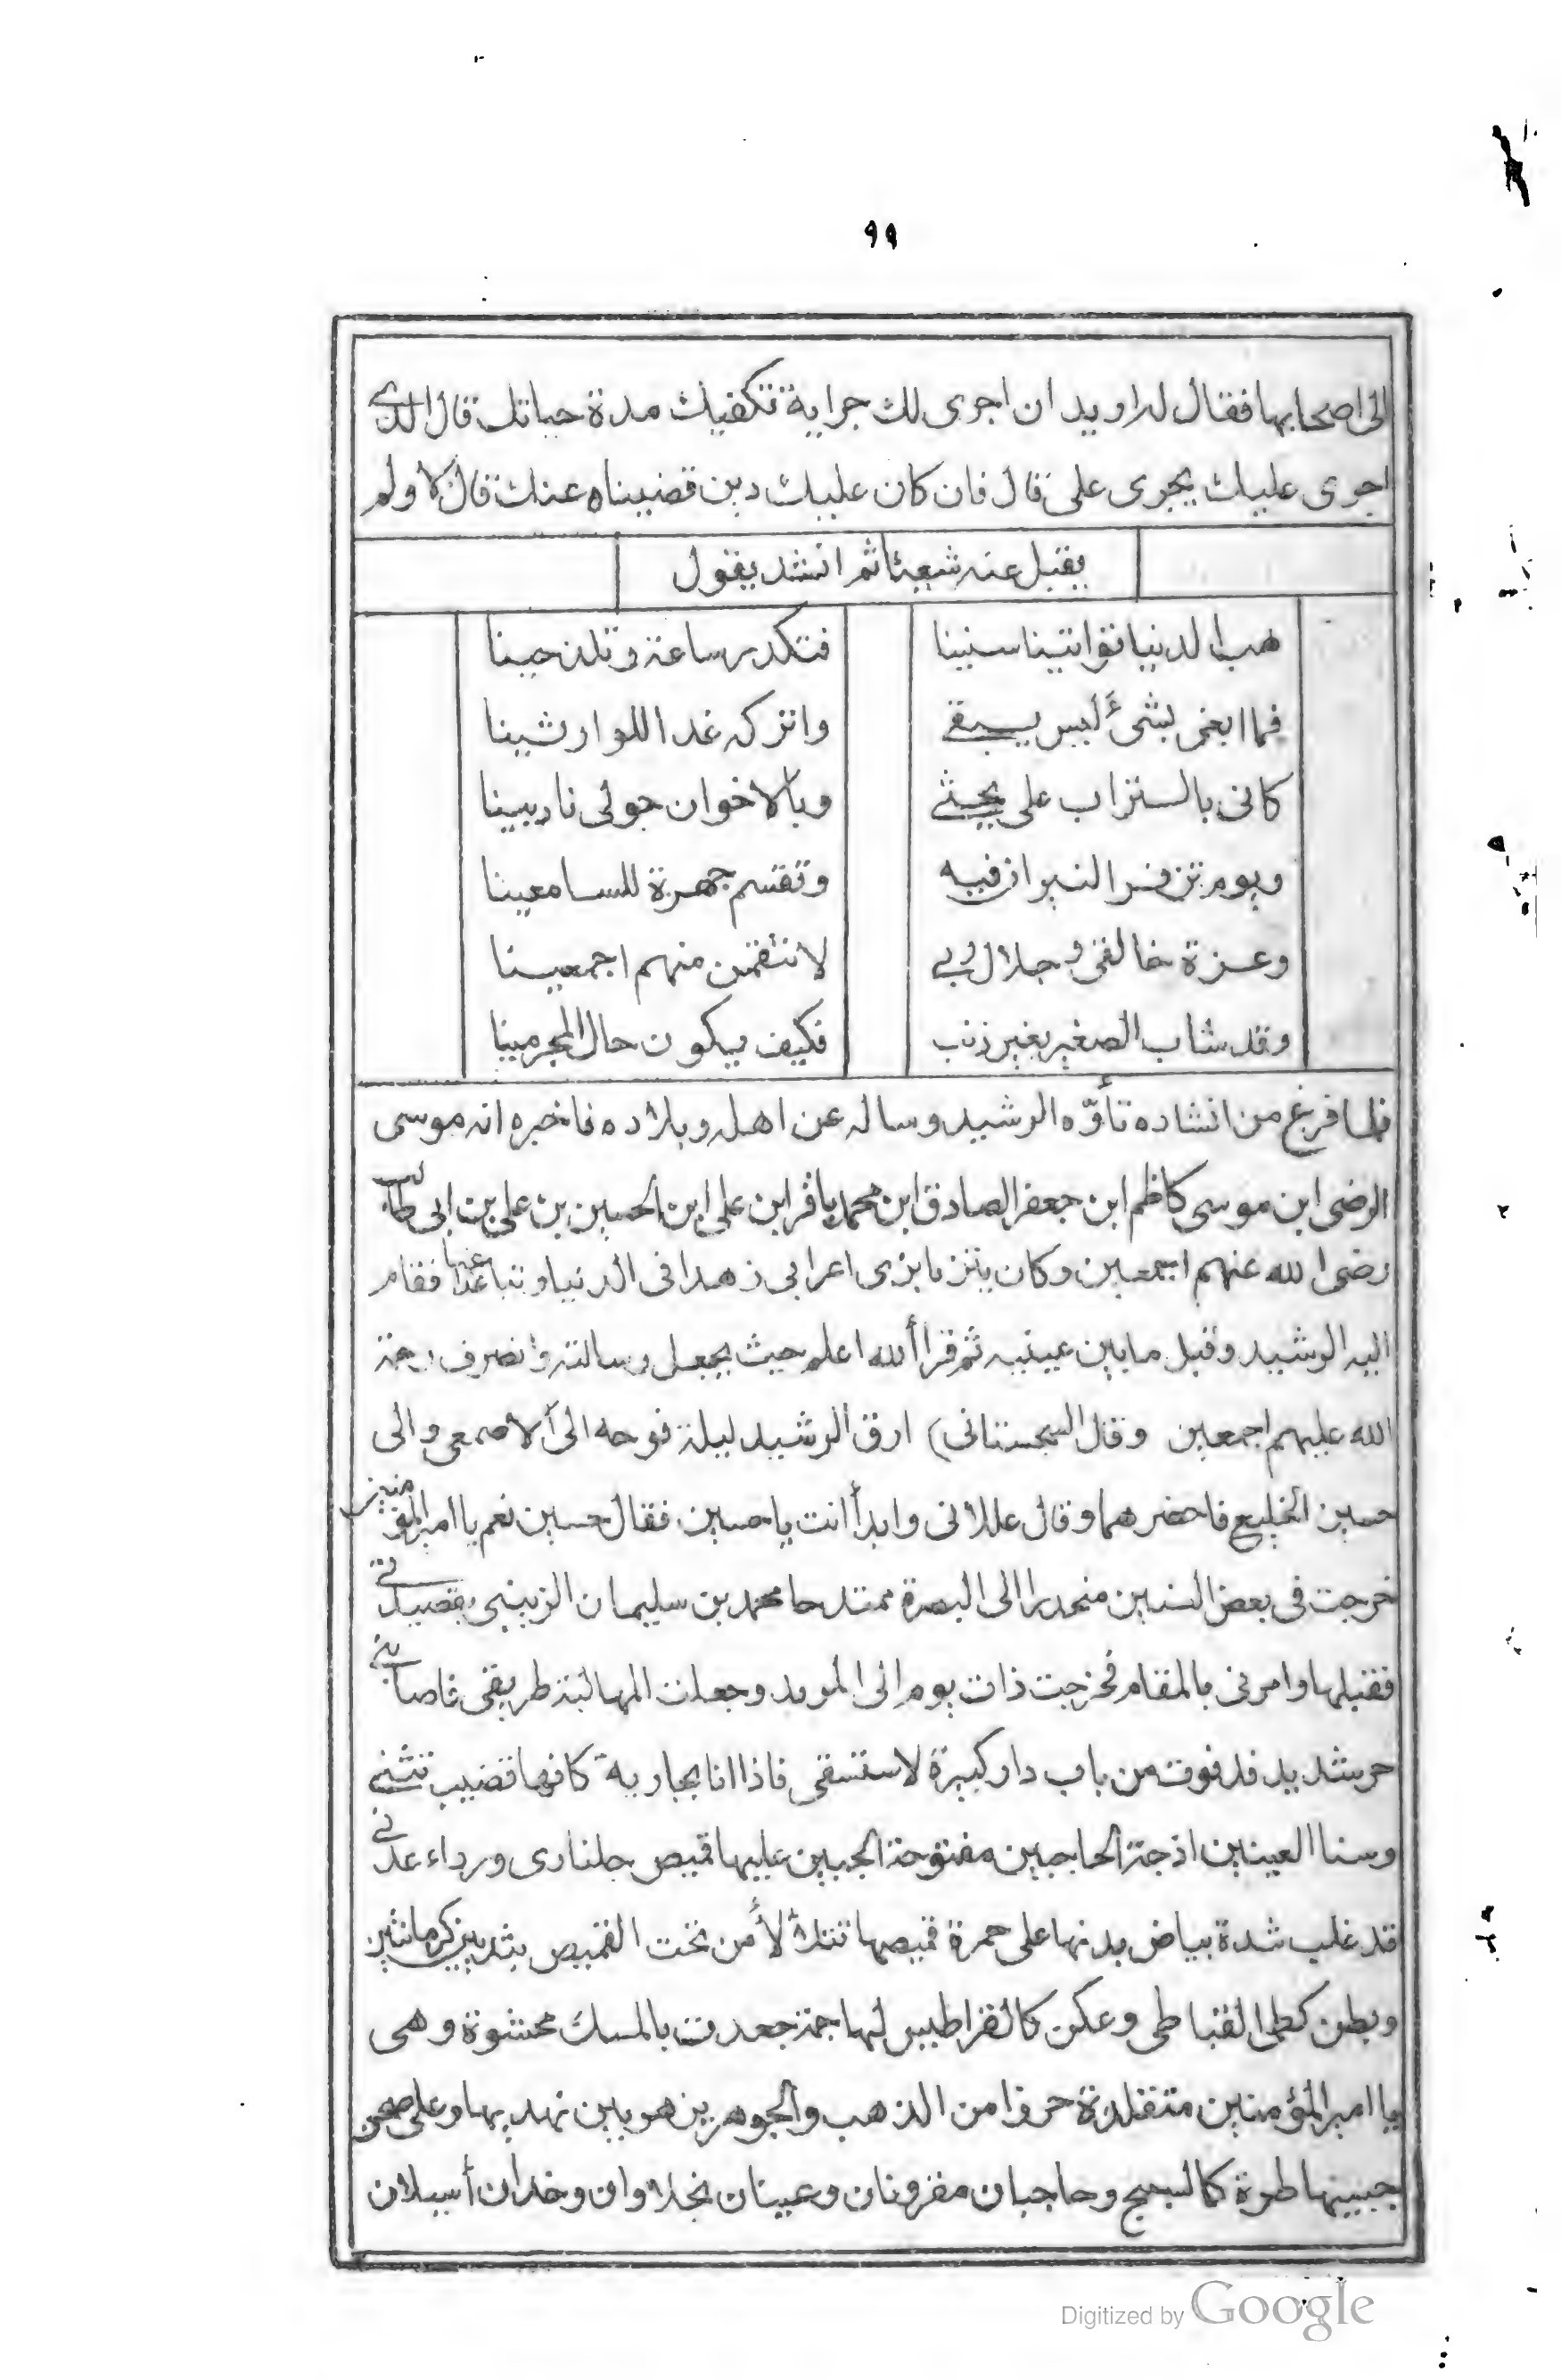 ٩٩
الى اصحابها فقال له اريد ان اجرى لك جراية تكفيك مدة حياتك قال الذي
اجرى عليك يجرى على قال فان كان عليك دين قضيناه عنك قال لا ولم
يقبل عنه شيئا ثم انشد يقول
هب الدنيا تواتينا سنينا فتكدر ساعة وتلذ حينا
فما ابغى بشئ ليس يبقى واتركه غدا للوارثينا
كانى بالتراب على يحثى وبالاخوان حولى نادبينا
ويوم تزفر النيران فيه وتقسم جهرة للسامعينا
وعزة خالقى وجلال ربى لانتقمن منهم اجمعينا
وقد شاب الصغير بغير ذنب فكيف يكون حال المجرمينا
فلما فرغ من انشاده تأوّه الرشيد وساله عن اهله وبلاده فاخبره انه موسى
الرضى ابن موسى كاظم ابن جعفر الصادق ابن محمد باقر ابن على ابن الحسين بن على بن ابى طالب
رضى الله عنهم اجمعين وكان يتزيا بزى اعرابى زهدا فى الدنيا وتباعدا عنها فقام
اليه الرشيد وقبل ما بين عينيه ثم قرأ الله اعلم حيث يجعل رسالته وانصرف رحمة
الله عليهم اجمعين وقال السجستانى) ارق الرشيد ليلة فوجه الى الاصمعى والى
حسين الخليع فاحضرهما وقال عللانى وابدأ انت يا حسين فقال حسين نعم يا امير المؤمنين
خرجت فى بعض السنين منحدرا الى البصرة ممتدحا محمد بن سليمان الزينبى بقصيدتى
فقبلها وامرنى بالمقام فخرجت ذات يوم الى المربد وجعلت المهالبة طريقى فاصابنى
حر شديد فدنوت من باب دار كبيرة لاستسقى فاذا انا بجارية كانها قضيب تثنى
وسنا العينين ازجة الحاجبين مفتوحة الجبين عليها قميص جلنارى ورداء عدنى
قد غلب شدة بياض بدنها على حمرة قميصها تتلألأ من تحت القميص بثديين كرمانتين
وبطن كطى القباطى وعكن كالقراطيس لها جمة جعدت بالمسك محشوة وهى
يا امير المؤمنين متقلدة خرزا من الذهب والجوهر يزهو بين نهديها وعلى صحن
جبينها طرة كالسبج وحاجبان مقرونان وعينان نجلاوان وخدان أسيلان
Digitized by Google